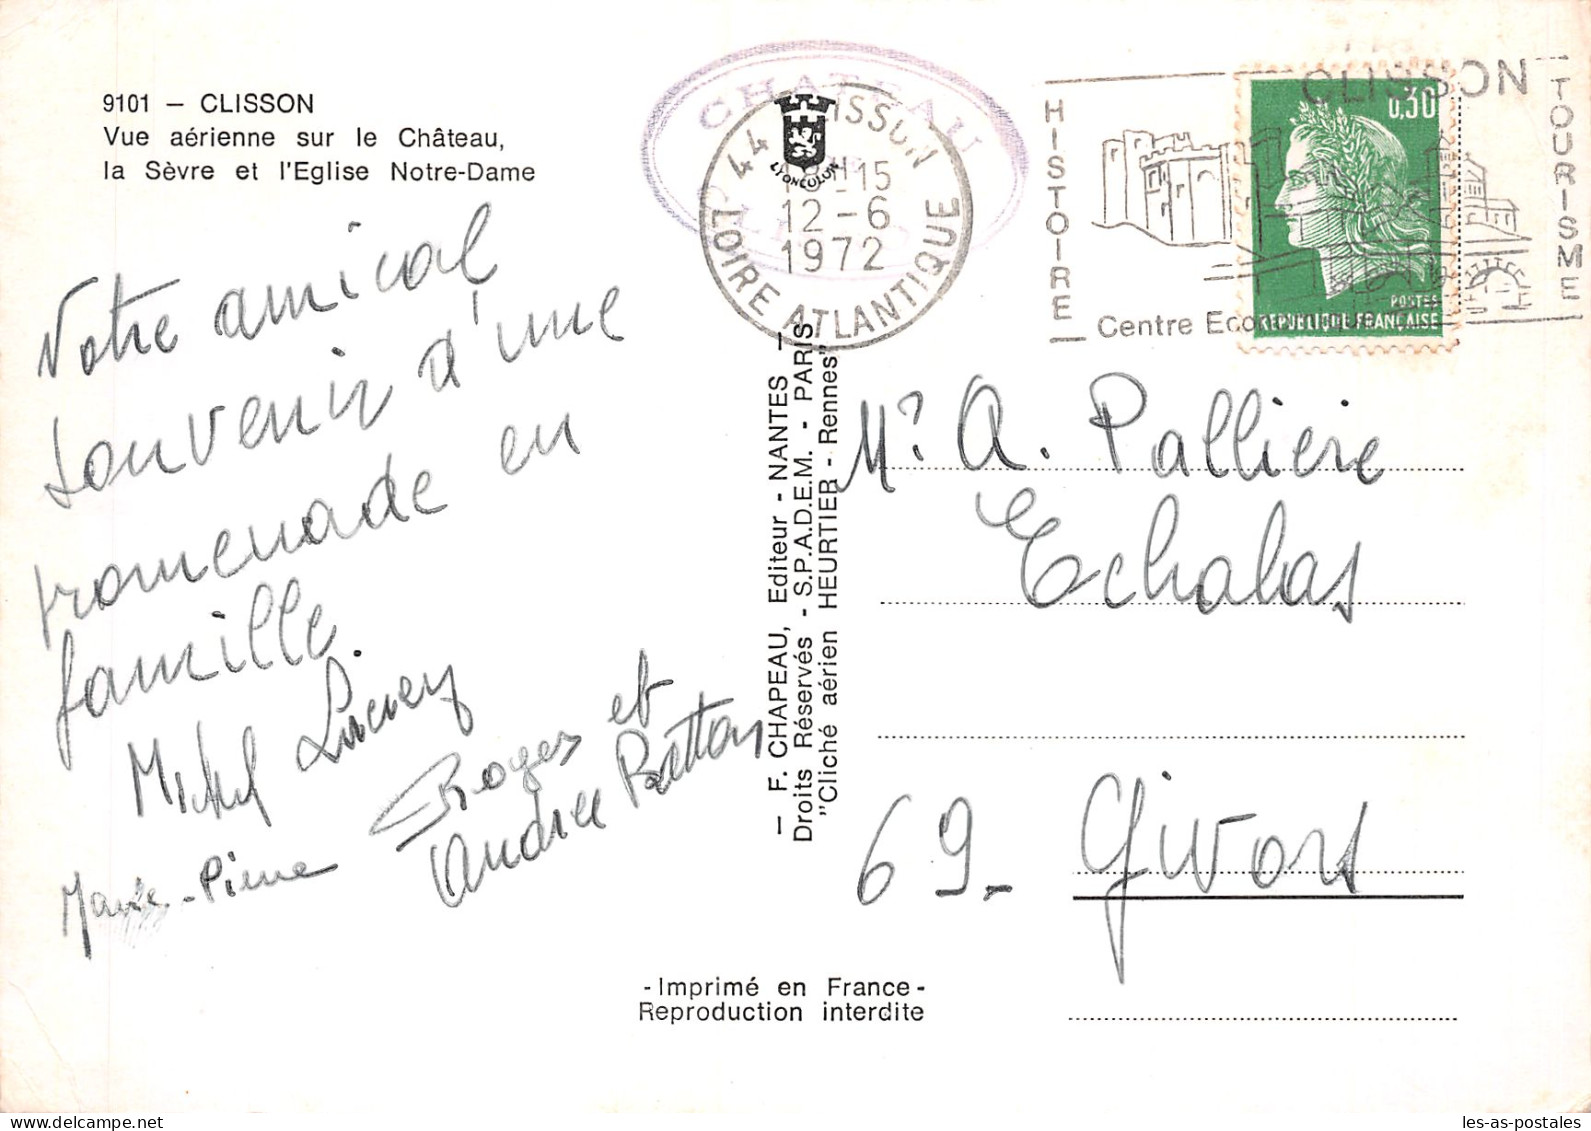 9101 — CLISSON
Vue aérienne sur le Château,
la Sèvre et l'Eglise Notre-Dame
Notre amical
souvenir d'une
promenade en
famille.
Michel Lucien
Roger et
Andrée Batton
Marie-Pierre
CHATEAU
44 CLISSON
18H15
12-6
1972
LOIRE ATLANTIQUE
HISTOIRE
CLISSON
TOURISME
Centre Economique
0,30
POSTES
REPUBLIQUE FRANÇAISE
— F. CHAPEAU, Editeur - NANTES —
Droits Réservés - S.P.A.D.E.M. - PARIS
"Cliché aérien HEURTIER - Rennes"
Mr A. Pallière
Echalas
69- Givors
- Imprimé en France -
Reproduction interdite
les-as-postales
delcampe.net